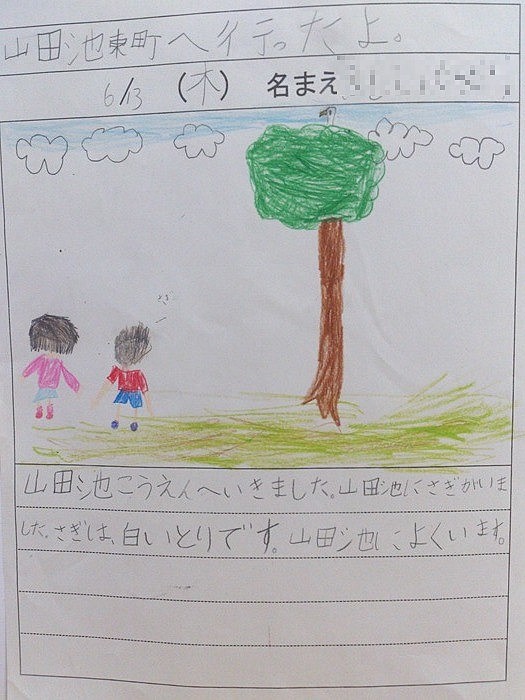 山田池東町へ行ったよ。
6/13 (木) 名まえ
さぎ
山田池こうえんへいきました。山田池にさぎがいま
した。さぎは、白いとりです。山田池によくいます。